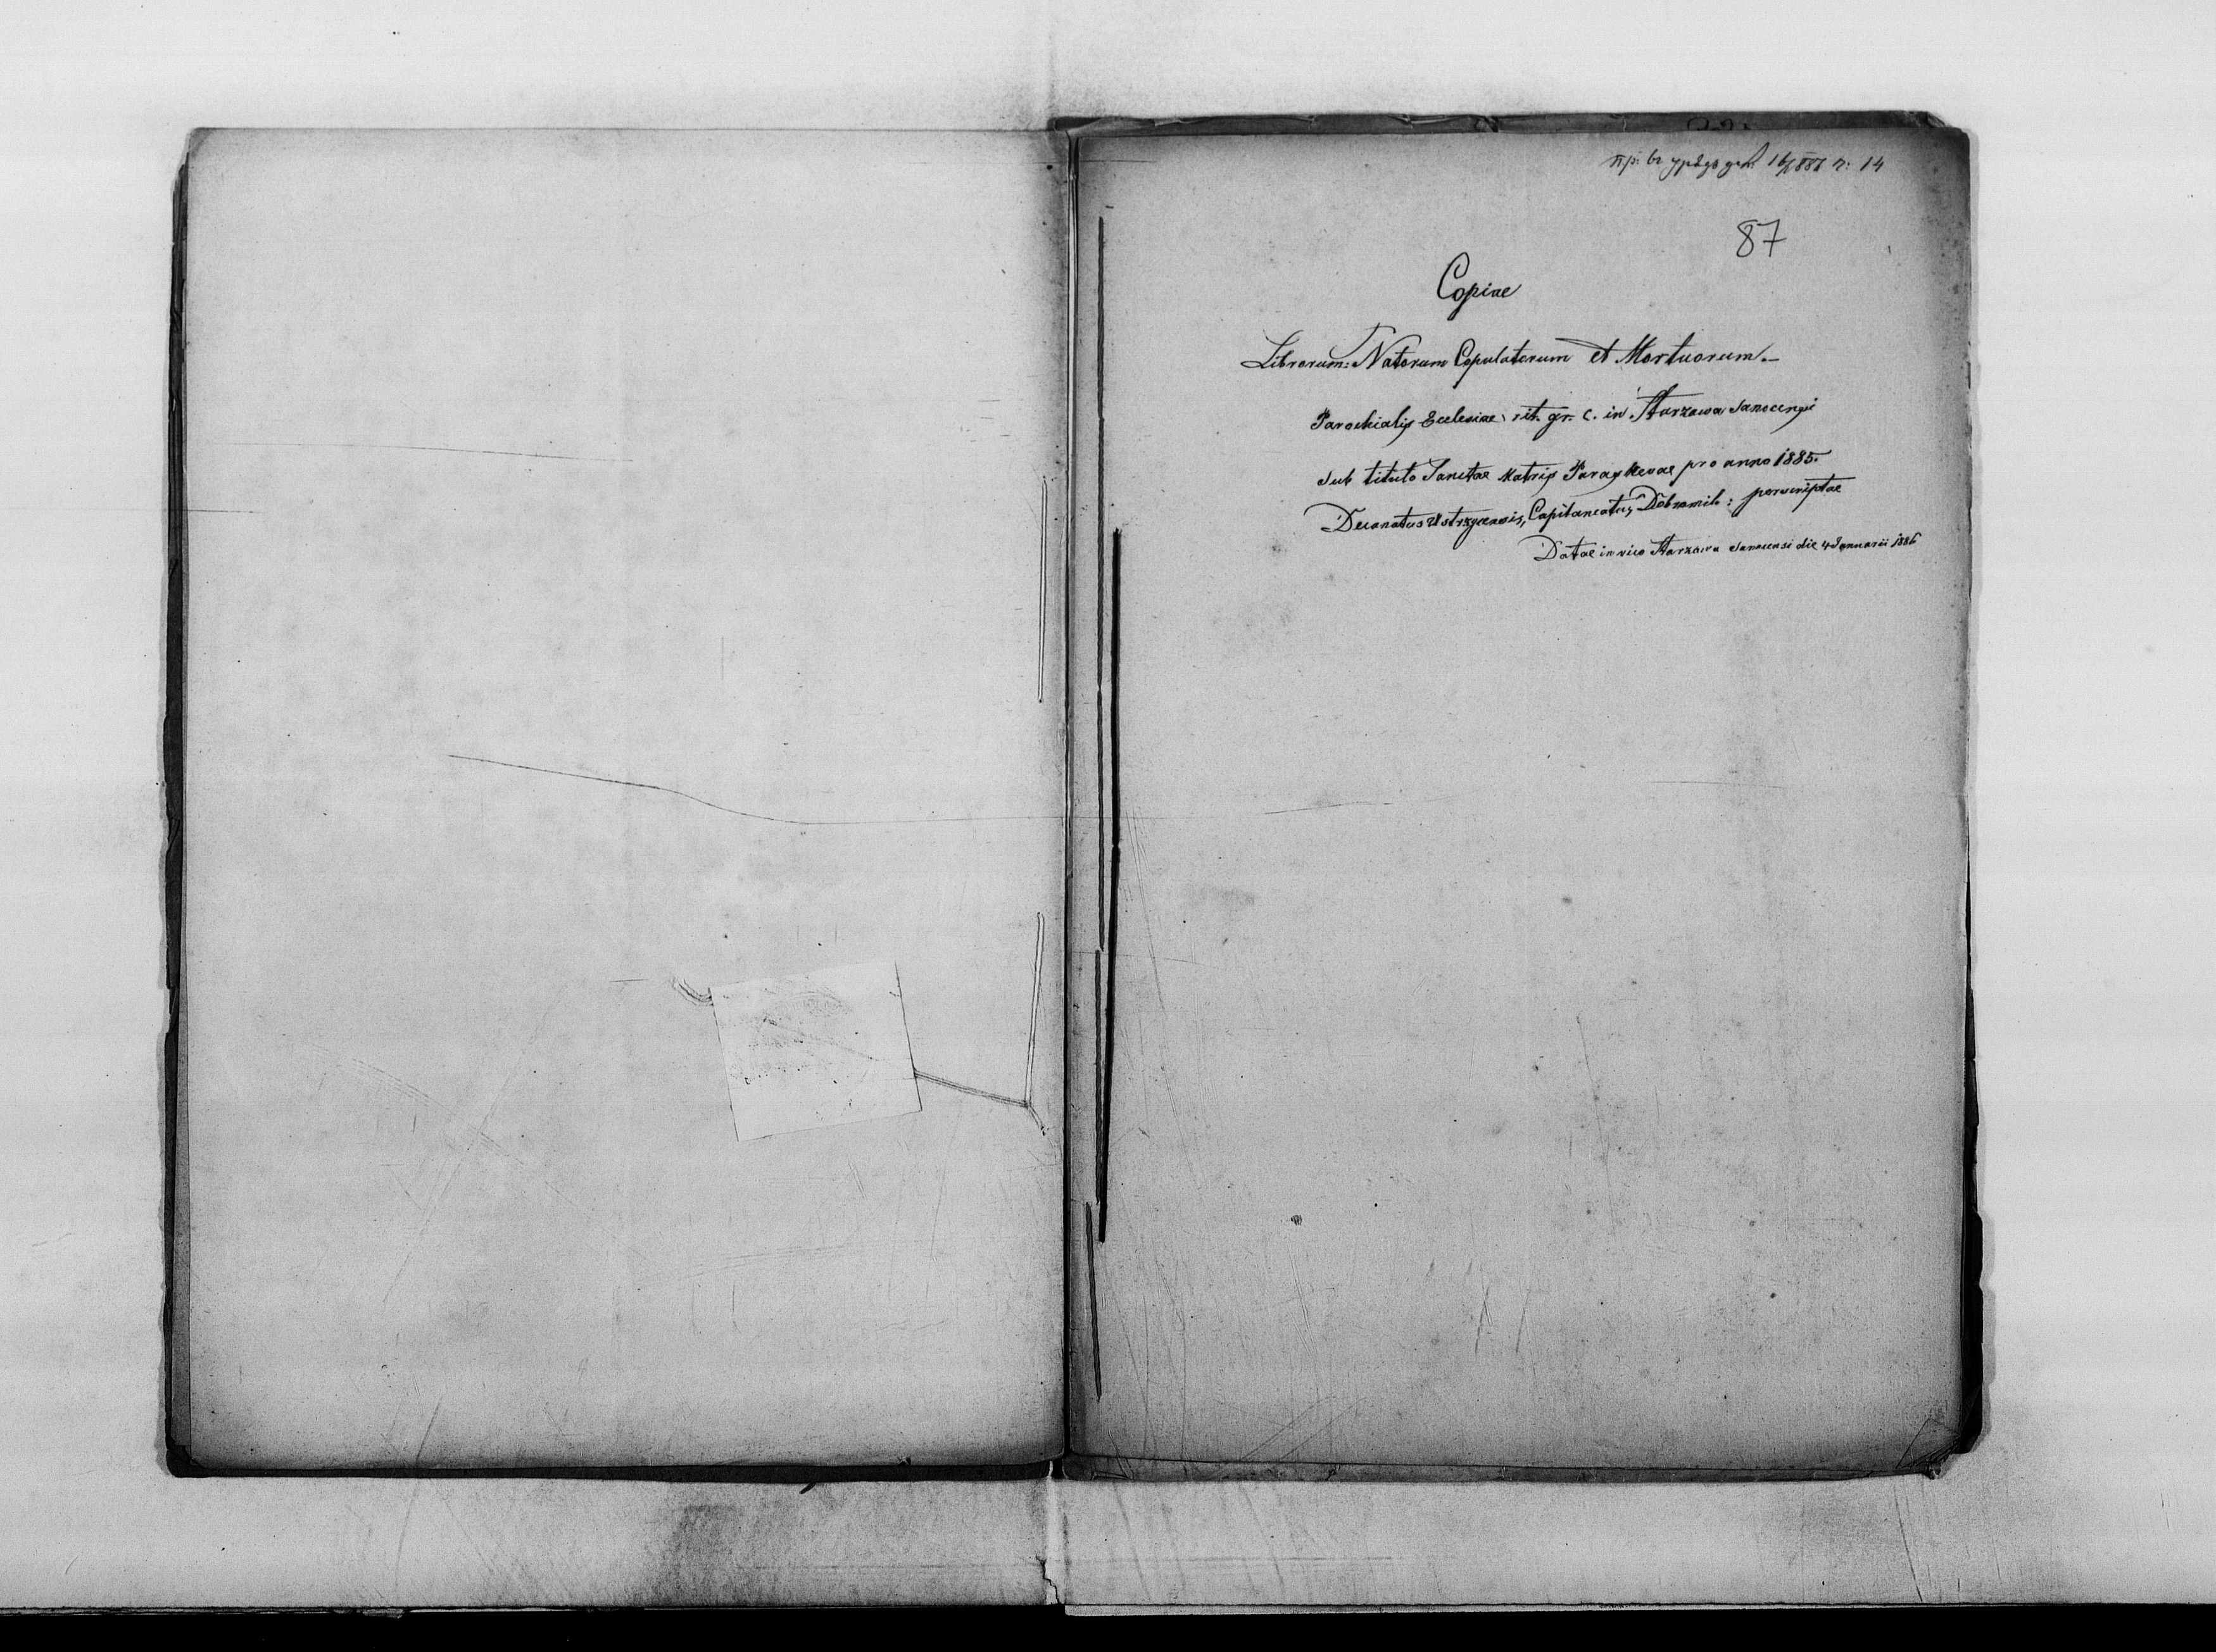 пр: въ урядъ дек. 16/1 886 ч: 14
87
Copiae
Librorum: Natorum Copulatorum et Mortuorum.–
Parochialis Ecclesiae rit. gr. c. in Starzawa Sanocensi
sub titulo Sanctae Matris Paraskevae pro anno 1885.
Decanatus Ustrzycensis, Capitaneatus Dobromil: perscriptae
Datae in vico Starzawa Sanocensi die 4 Januarii 1886